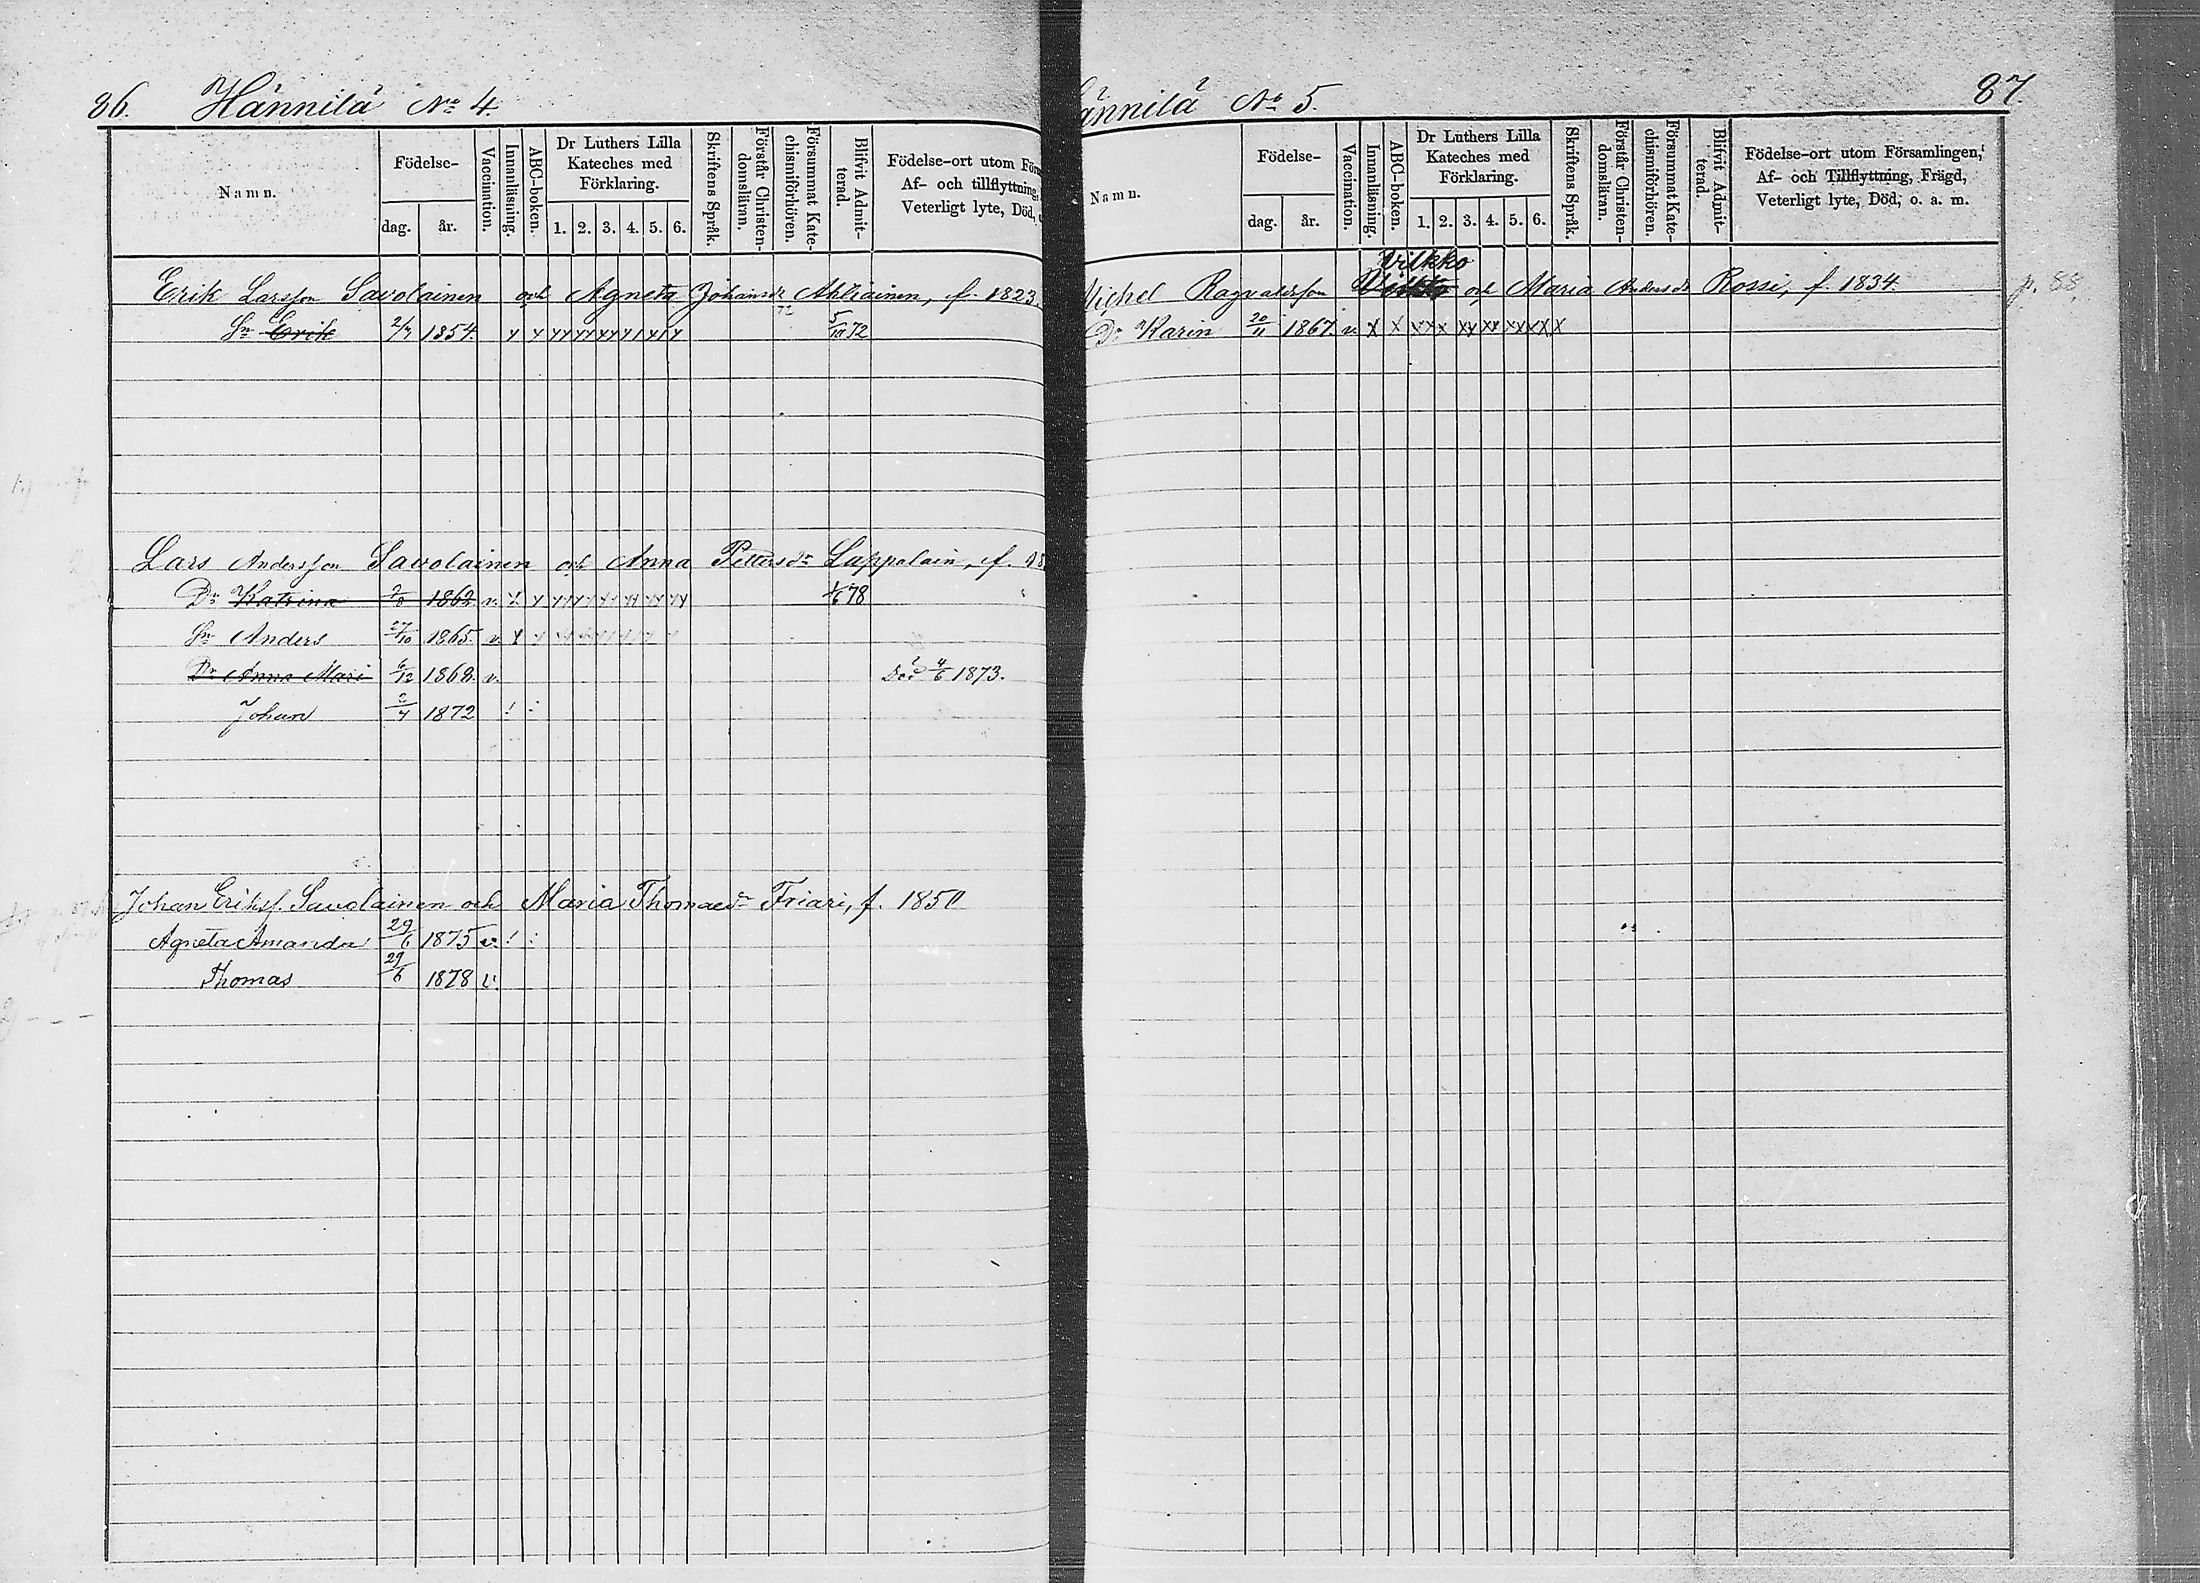 86. Hännilä No 4.
Namn.
Födelse-
dag. år.
Vaccination.
Innanläsning.
ABC-boken.
Dr Luthers Lilla Kateches med Förklaring.
1. 2. 3. 4. 5. 6.
Skriftens Språk.
Förstår Christen-domsläran.
Försummat Kate-chismiförhören.
Blifvit Admit-terad.
Födelse-ort utom För
Af- och tillflyttning,
Veterligt lyte, Död,
Erik Larsson Savolainen och Agneta Johansdr Ahliainen, f. 1823.
Sn Erik 2/7 1854. x x x x x x x x x x x x x 5/10 72
Lars Andersson Savolainen och Anna Pettersdr Lappalain, f. 18
Dr Katrina 1862 v. 1/6 78
Sn Anders 27/10 1865. v.
Dr Anna Mari 6/12 1868. v. Död 4/6 1873.
Johan 2/4 1872 ! :
Johan Eriksf. Savolainen och Maria Thomaedr Friari, f. 1850
Agneta Amanda 29/6 1875 v. ! :
Thomas 29/6 1878 v.
ännilä No 5. 87.
Namn.
Födelse-
dag. år.
Vaccination.
Innanläsning.
ABC-boken.
Dr Luthers Lilla Kateches med Förklaring.
1. 2. 3. 4. 5. 6.
Skriftens Språk.
Förstår Christen-domsläran.
Försummat Kate-chismiförhören.
Blifvit Admit-terad.
Födelse-ort utom Församlingen,
Af- och Tillflyttning, Frägd,
Veterligt lyte, Död, o. a. m.
Vilkko
Michel Ragvaldsson och Maria Andersdr Rossi, f. 1834. p. 88
Dr Karin 20/11 1867. v. x x x x x x x x x x x x x x